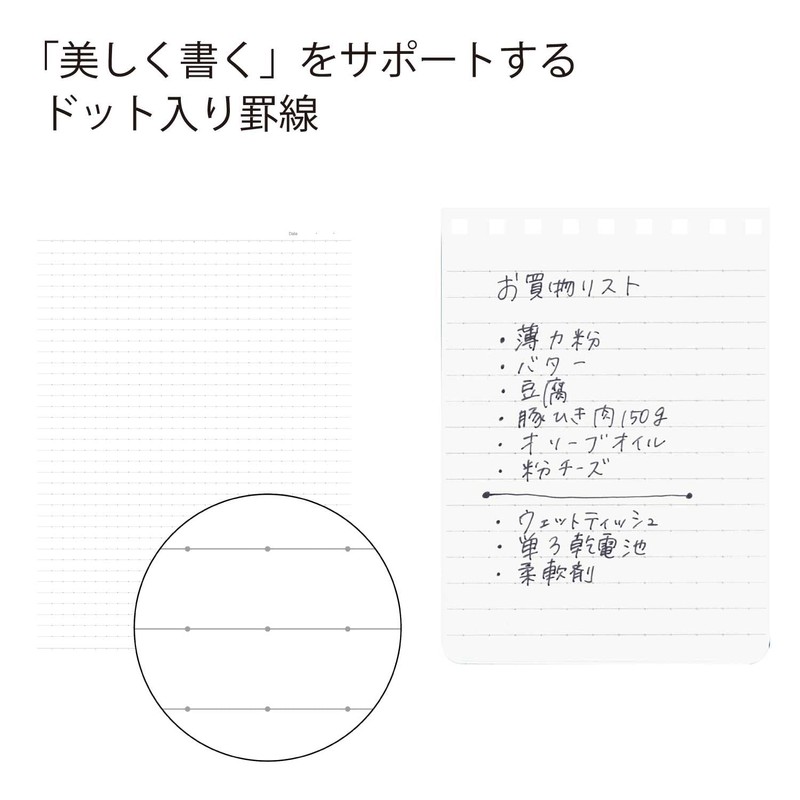 「美しく書く」をサポートする
ドット入り罫線
Date
お買物リスト
・薄力粉
・バター
・豆腐
・豚ひき肉150g
・オリーブオイル
・粉チーズ
・ウェットティッシュ
・単3乾電池
・柔軟剤